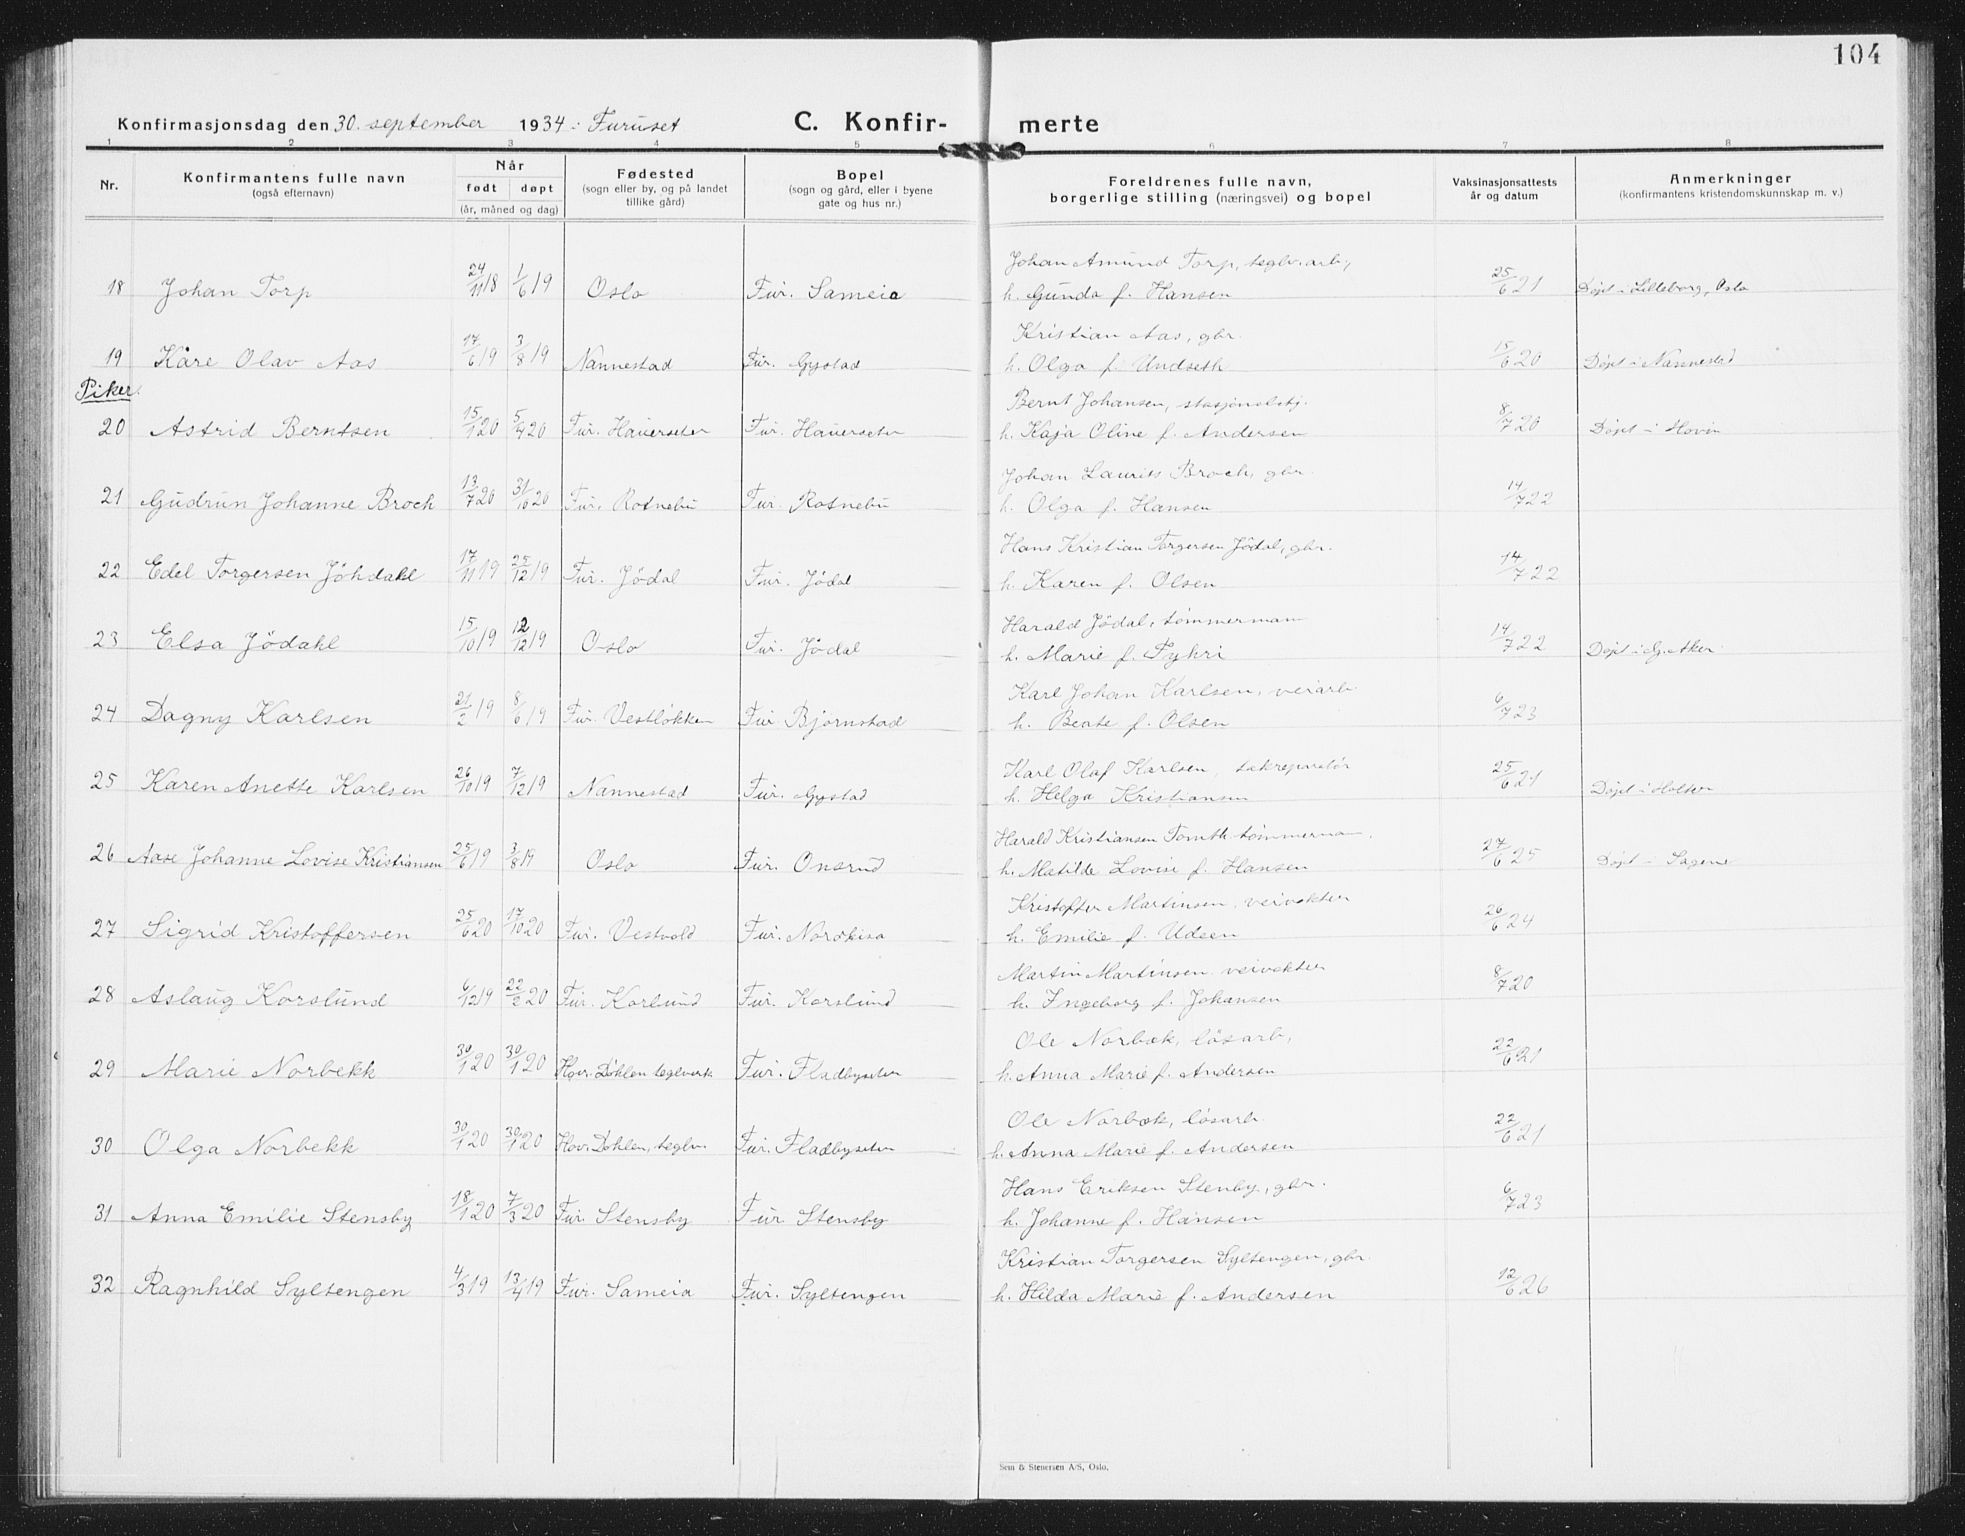 104
Konfirmasjonsdag den 30. september 1934 i Furuset C. Konfir- merte
1 2 3 4 5 6 7 8
Nr. Konfirmantens fulle navn (også efternavn) Når født døpt (år, måned og dag) Fødested (sogn eller by, og på landet tillike gård) Bopel (sogn og gård, eller i byene gate og hus nr.) Foreldrenes fulle navn, borgerlige stilling (næringsvei) og bopel Vaksinasjonsattests år og datum Anmerkninger (konfirmantens kristendomskunnskap m. v.)
Johan Amund Torp, teglv.arb.,
18 Johan Torp 24/11 18 1/6 19 Oslo Fur. Sameia h. Gunda f. Hansen 25/6 21 Døpt i Lilleborg, Oslo
Kristian Aas, gbr.
19 Kåre Olav Aas 17/6 19 3/8 19 Nannestad Fur. Gystad h. Olga f. Undseth 15/6 20 Døpt i Nannestad
Piker.
Bernt Johansen, stasjonsbtj.
20 Astrid Berntsen 15/1 20 5/4 20 Fur. Hauerseter Fur. Hauerseter h. Kaja Oline f. Andersen 8/7 20 Døpt i Hovin
Johan Laurits Broch, gbr.
21 Gudrun Johanne Broch 13/7 20 31/10 20 Fur. Rotnebu Fur. Rotnebu h. Olga f. Hansen 14/7 22
Hans Kristian Torgersen Jödal, gbr.
22 Edel Torgersen Jöhdahl 17/11 19 25/12 19 Fur. Jödal Fur. Jödal h. Karen f. Olsen 14/7 22
Harald Jödal, tömmermann
23 Elsa Jödahl 15/10 19 12/12 19 Oslo Fur. Jödal h. Marie f. Fykri 14/7 22 Døpt i G. Aker
Karl Johan Karlsen, veiarb.
24 Dagny Karlsen 21/2 19 8/6 19 Fur. Vestlökken Fur. Bjørnstad h. Beate f. Olsen 6/7 23
Karl Olaf Karlsen,
25 Karen Anette Karlsen 26/10 19 7/12 19 Nannestad Fur. Gystad h. Helga Kristiansen 25/6 21 Døpt i Holter
Harald Kristiansen Tomth. tömmermann,
26 Aase Johanne Lovise Kristiansen 25/6 19 3/8 19 Oslo Fur. Onsrud h. Matilde Lovise f. Hansen 27/6 25 Døpt i Sagene
Kristoffer Martinsen, veivokter
27 Sigrid Kristoffersen 25/6 20 17/10 20 Fur. Vestvold Fur. Nordkisa h. Emilie f. Udsen 26/6 24
Martin Martinsen veivokter
28 Aslaug Korslund 6/12 19 22/2 20 Fur. Korlund Fur. Korslund h. Ingeborg f. Johansen 8/7 20
Ole Norbæk, lösarb.,
29 Marie Norbekk 30/1 20 30/1 20 Hov. Döhlen teglverk Fur. Fladbyseter h. Anna Marie f. Andersen 22/6 21
Ole Norbæk, lösarb.
30 Olga Norbekk 30/1 20 30/1 20 Hov. Döhlen, teglv. Fur. Fladbyseter h. Anna Marie f. Andersen 22/6 21
Hans Eriksen Stenby, gbr.
31 Anna Emilie Stensby 18/1 20 7/3 20 Fur. Stensby Fur. Stensby h. Johanne f. Hansen 6/7 23
Kristian Torgersen Syltengen, gbr.
32 Ragnhild Syltengen 4/3 19 13/4 19 Fur. Sameia Fur. Syltengen h. Hilda Marie f. Andersen 12/6 26
Sem & Stenersen A/S, Oslo.